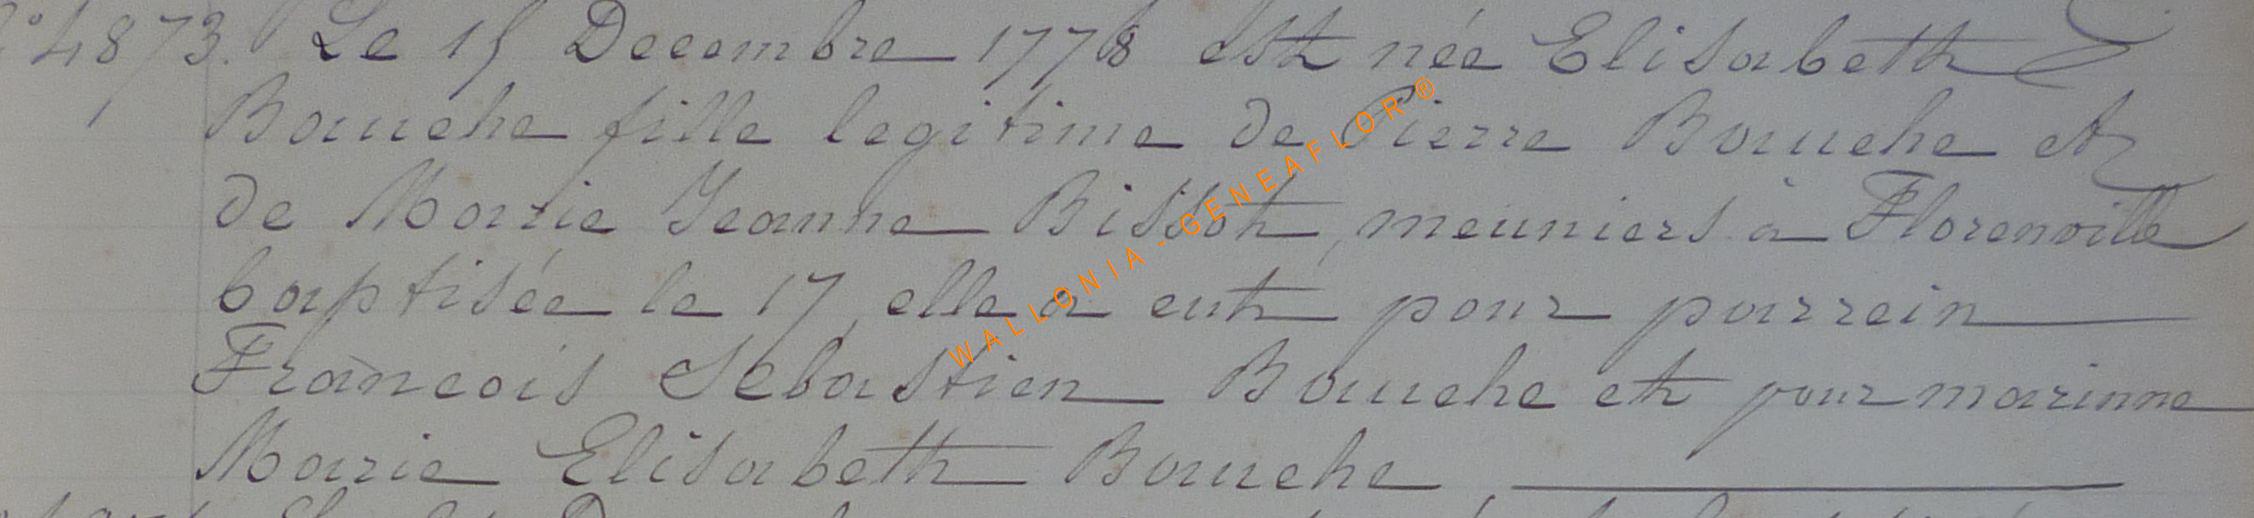 N° 4873. Le 15 Decembre 1778 est née Elisabeth
Bouuche fille legitime de Pierre Bouuche et
de Marie Jeanne Bissot, meuniers à Florenville
baptisée le 17, elle a eut pour parrein
François Sebastien Bouuche et pour marinne
Marie Elisabeth Bouuche,
WALLONIA - GENEAFLOR ®